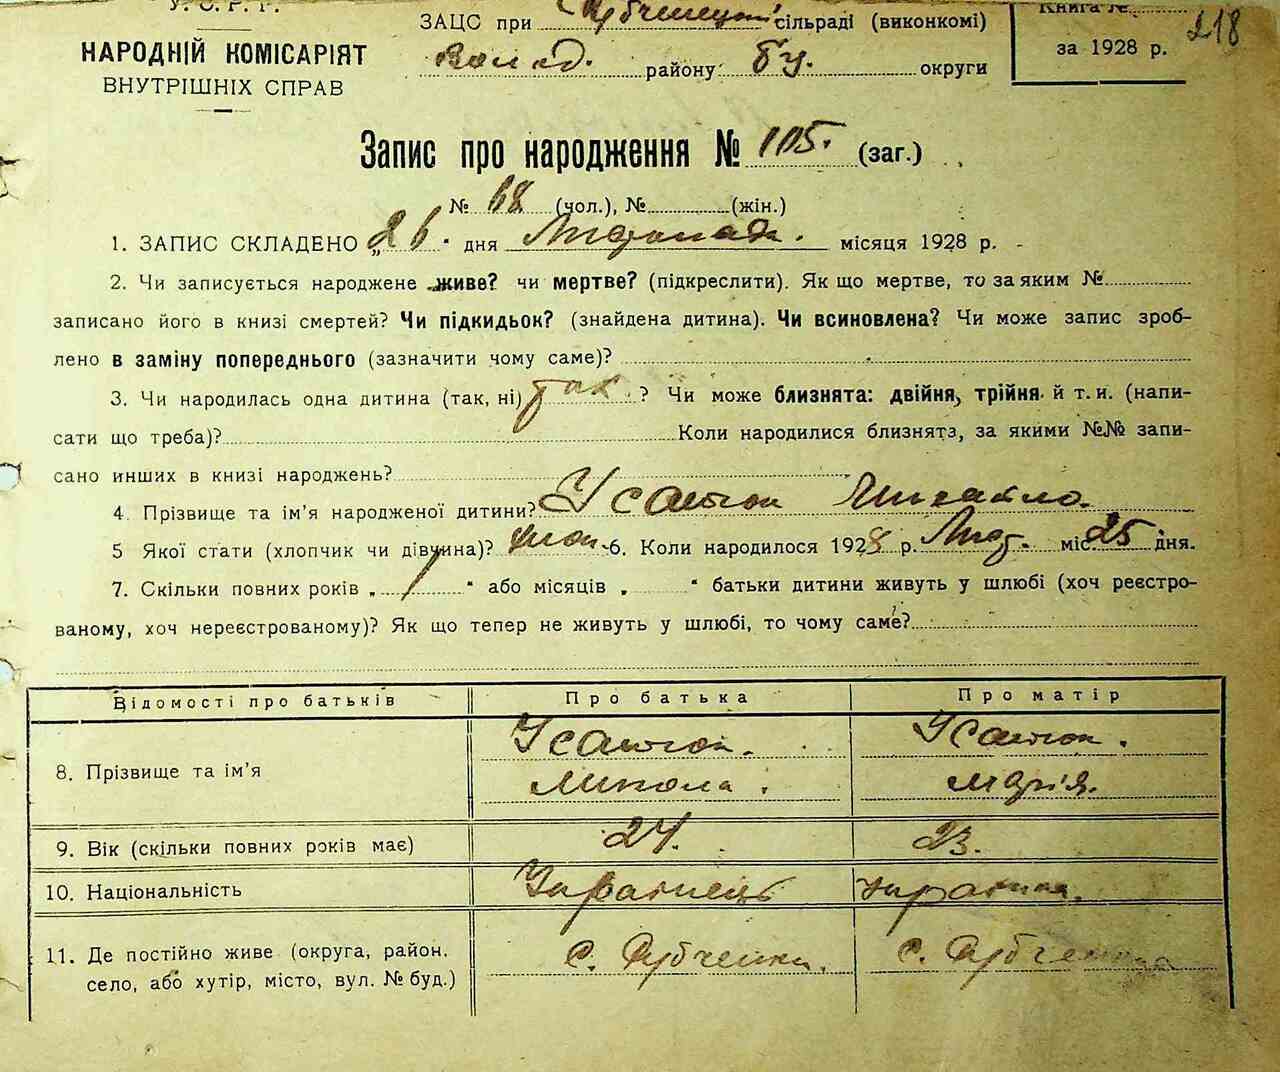 У. С. Р. Р.
ЗАЦС при Рубченецькій сільраді (виконкомі)
Книга №
218
НАРОДНІЙ КОМІСАРІЯТ
ВНУТРІШНІХ СПРАВ
Волод. району Бц. округи
за 1928 р.
Запис про народження № 105. (заг.)
№ 68 (чол.), № (жін.)
1. ЗАПИС СКЛАДЕНО „26" дня Листопада. місяця 1928 р.
2. Чи записується народжене живе? чи мертве? (підкреслити). Як що мертве, то за яким №
записано його в книзі смертей? Чи підкидьок? (знайдена дитина). Чи всиновлена? Чи може запис зроб-
лено в заміну попереднього (зазначити чому саме)?
3. Чи народилась одна дитина (так, ні) так. ? Чи може близнята: двійня, трійня й т. и. (напи-
сати що треба)? Коли народилися близнята, за якими №№ запи-
сано инших в книзі народжень?
4. Прізвище та ім'я народженої дитини? Усатюк Михайло.
5 Якої статі (хлопчик чи дівчина)? 6. Коли народилося 1928 р. Лист. міс. 25 дня.
7. Скільки повних років „1" або місяців „ " батьки дитини живуть у шлюбі (хоч реєстро-
ваному, хоч нереєстрованому)? Як що тепер не живуть у шлюбі, то чому саме?
Відомості про батьків Про батька Про матір
8. Прізвище та ім'я Усатюк. Микола. Усатюк. Марія.
9. Вік (скільки повних років має) 24. 23.
10. Національність Українець Українка.
11. Де постійно живе (округа, район, с. Рубченки. с. Рубченки
село, або хутір, місто, вул. № буд.)